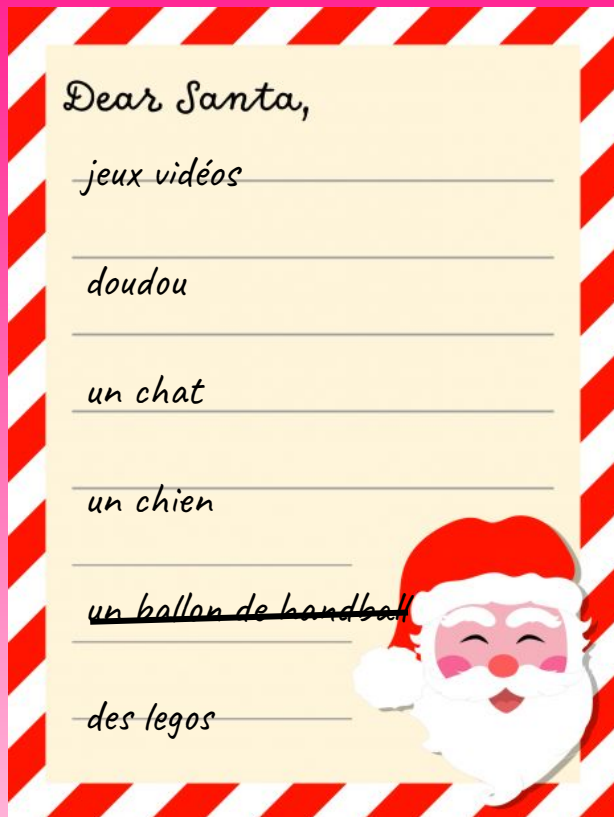 Dear Santa,
jeux vidéos
doudou
un chat
un chien
un ballon de handball
des legos